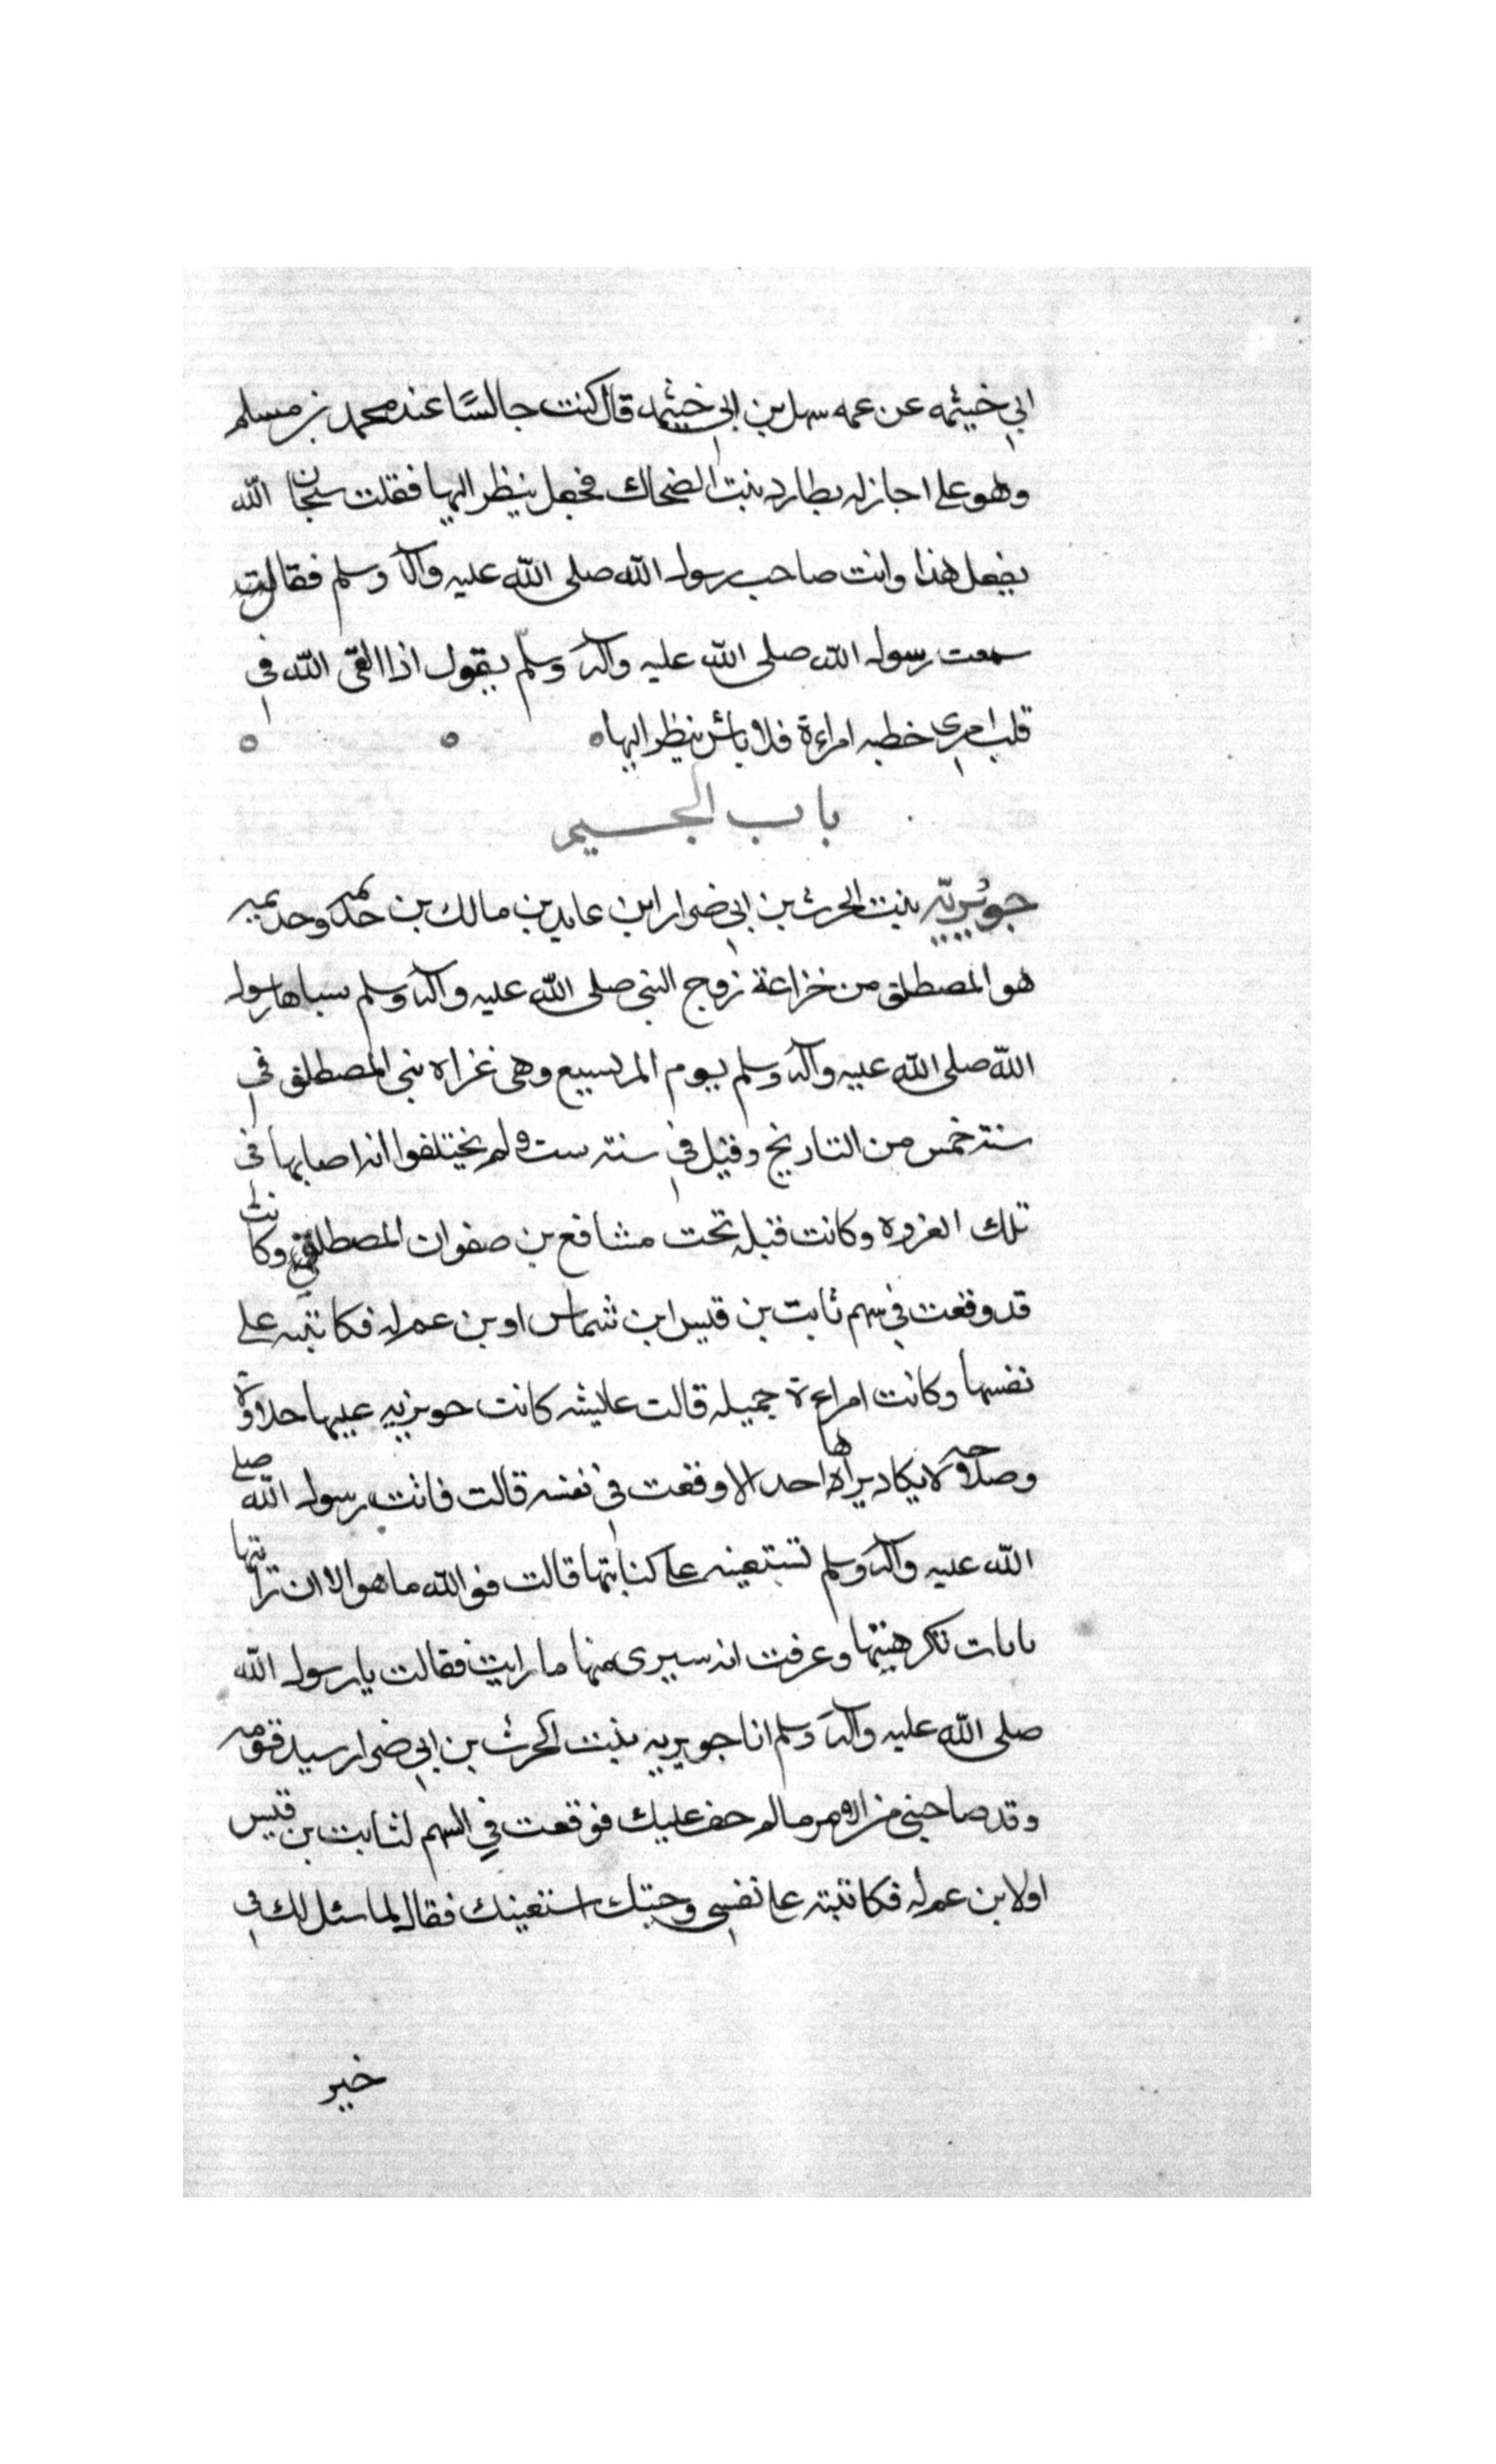 ابي خيثمه عن عمه سهل بن ابي خيثمه قال كنت جالسًا عند محمد بن مسلم
وهو على اجازله يطارد بنت الضحاك فجعل ينظر اليها فقلت سبحان الله
يفعل هذا وانت صاحب رسول الله صلى الله عليه وآله وسلم فقالت
سمعت رسول الله صلى الله عليه وآله وسلّم يقول اذا القى الله في
قلب امرى خطبه امراءة فلا بأس ينظر اليها
باب الجسيم
جوُيريّه بنت الحرث بن ابي ضرار ابن عايد بن مالك بن حذيمه وحذيمه
هو المصطلق من خزاعة زوج النبي صلى الله عليه وآله وسلم سباها رسول
الله صلى الله عليه وآله وسلم يوم المريسيع وهى غزاة بنى المصطلق في
سنة خمس من التاريخ وقيل في سنة ست ولم يختلفوا انه اصابها في
تلك الغزوة وكانت قبله تحت مشافع بن صفوان المصطلقي وكانت
قد وقعت في سهم ثابت بن قيس ابن شماس او بن عم له فكاتبته على
نفسها وكانت امراءة جميله قالت عايشه كانت جويريه عليها حلاوة
وصلاحه لا يكاد يراها احد الا وقعت في نفسه قالت فاتت رسول الله صلى
الله عليه وآله وسلم تستعينه على كتابتها قالت فوالله ما هو الا ان رايتها
بابات تكرهيتها وعرفت انه سيرى منها ما رايت فقالت يا رسول الله
صلى الله عليه وآله وسلم انا جويريه بنت الحرث بن ابي ضرار سيد قومه
وقد صاحبنى من الامر مالم خف عليك فوقعت في السهم لثابت بن قيس
اولابن عم له فكاتبته على نفسي وجئتك استعينك فقال لها سئل لك في
خير